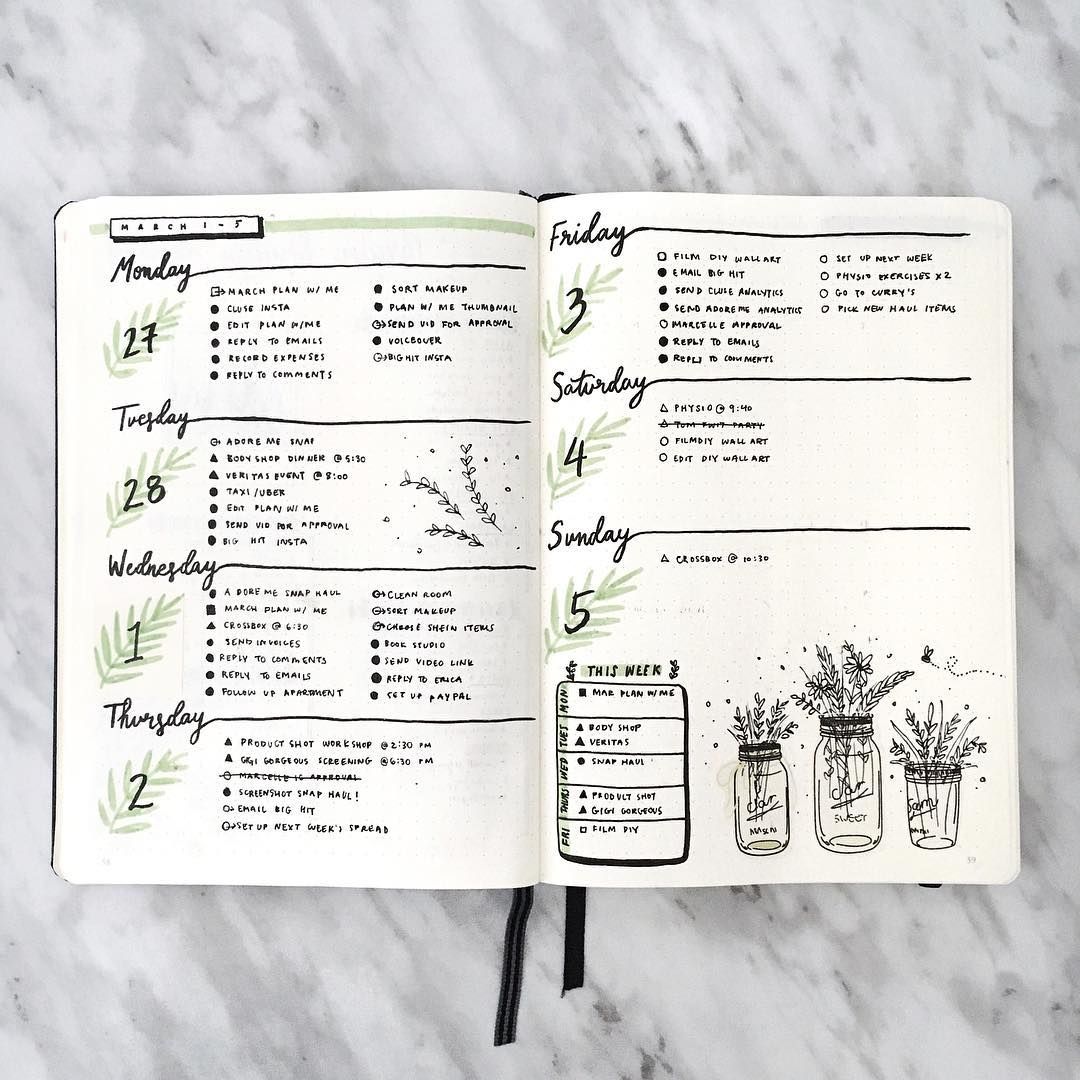 MARCH 1-5
Monday
27
MARCH PLAN W/ ME
CLUSE INSTA
EDIT PLAN W/ME
REPLY TO EMAILS
RECORD EXPENSES
REPLY TO COMMENTS
SORT MAKEUP
PLAN W/ ME THUMBNAIL
SEND VID FOR APPROVAL
VOICEOVER
BIG HIT INSTA
Tuesday
28
ADORE ME SNAP
BODY SHOP DINNER @ 5:30
VERITAS EVENT @ 8:00
TAXI/UBER
EDIT PLAN W/ ME
SEND VID FOR APPROVAL
BIG HIT INSTA
Wednesday
1
ADORE ME SNAP HAUL
MARCH PLAN W/ ME
CROSSBOX @ 6:30
SEND INVOICES
REPLY TO COMMENTS
REPLY TO EMAILS
FOLLOW UP APARTMENT
CLEAN ROOM
SORT MAKEUP
CHOOSE SHEIN ITEMS
BOOK STUDIO
SEND VIDEO LINK
REPLY TO ERICA
SET UP PAYPAL
Thursday
2
PRODUCT SHOT WORKSHOP @ 2:30 PM
GIGI GORGEOUS SCREENING @ 6:30 PM
MARCELLE IG APPROVAL
SCREENSHOT SNAP HAUL!
EMAIL BIG HIT
SET UP NEXT WEEK'S SPREAD
Friday
3
FILM DIY WALL ART
EMAIL BIG HIT
SEND CLUSE ANALYTICS
SEND ADORE ME ANALYTICS
MARCELLE APPROVAL
REPLY TO EMAILS
REPLY TO COMMENTS
SET UP NEXT WEEK
PHYSIO EXERCISES X2
GO TO CURRY'S
PICK NEW HAUL ITEMS
Saturday
4
PHYSIO @ 9:40
TOM PARTY
FILM DIY WALL ART
EDIT DIY WALL ART
Sunday
5
CROSSBOX @ 10:30
THIS WEEK
MON
MAR PLAN W/ME
TUES
BODY SHOP
VERITAS
WED
SNAP HAUL
THURS
PRODUCT SHOT
GIGI GORGEOUS
FRI
FILM DIY
Jar
Jar
SWEET
Jam
39